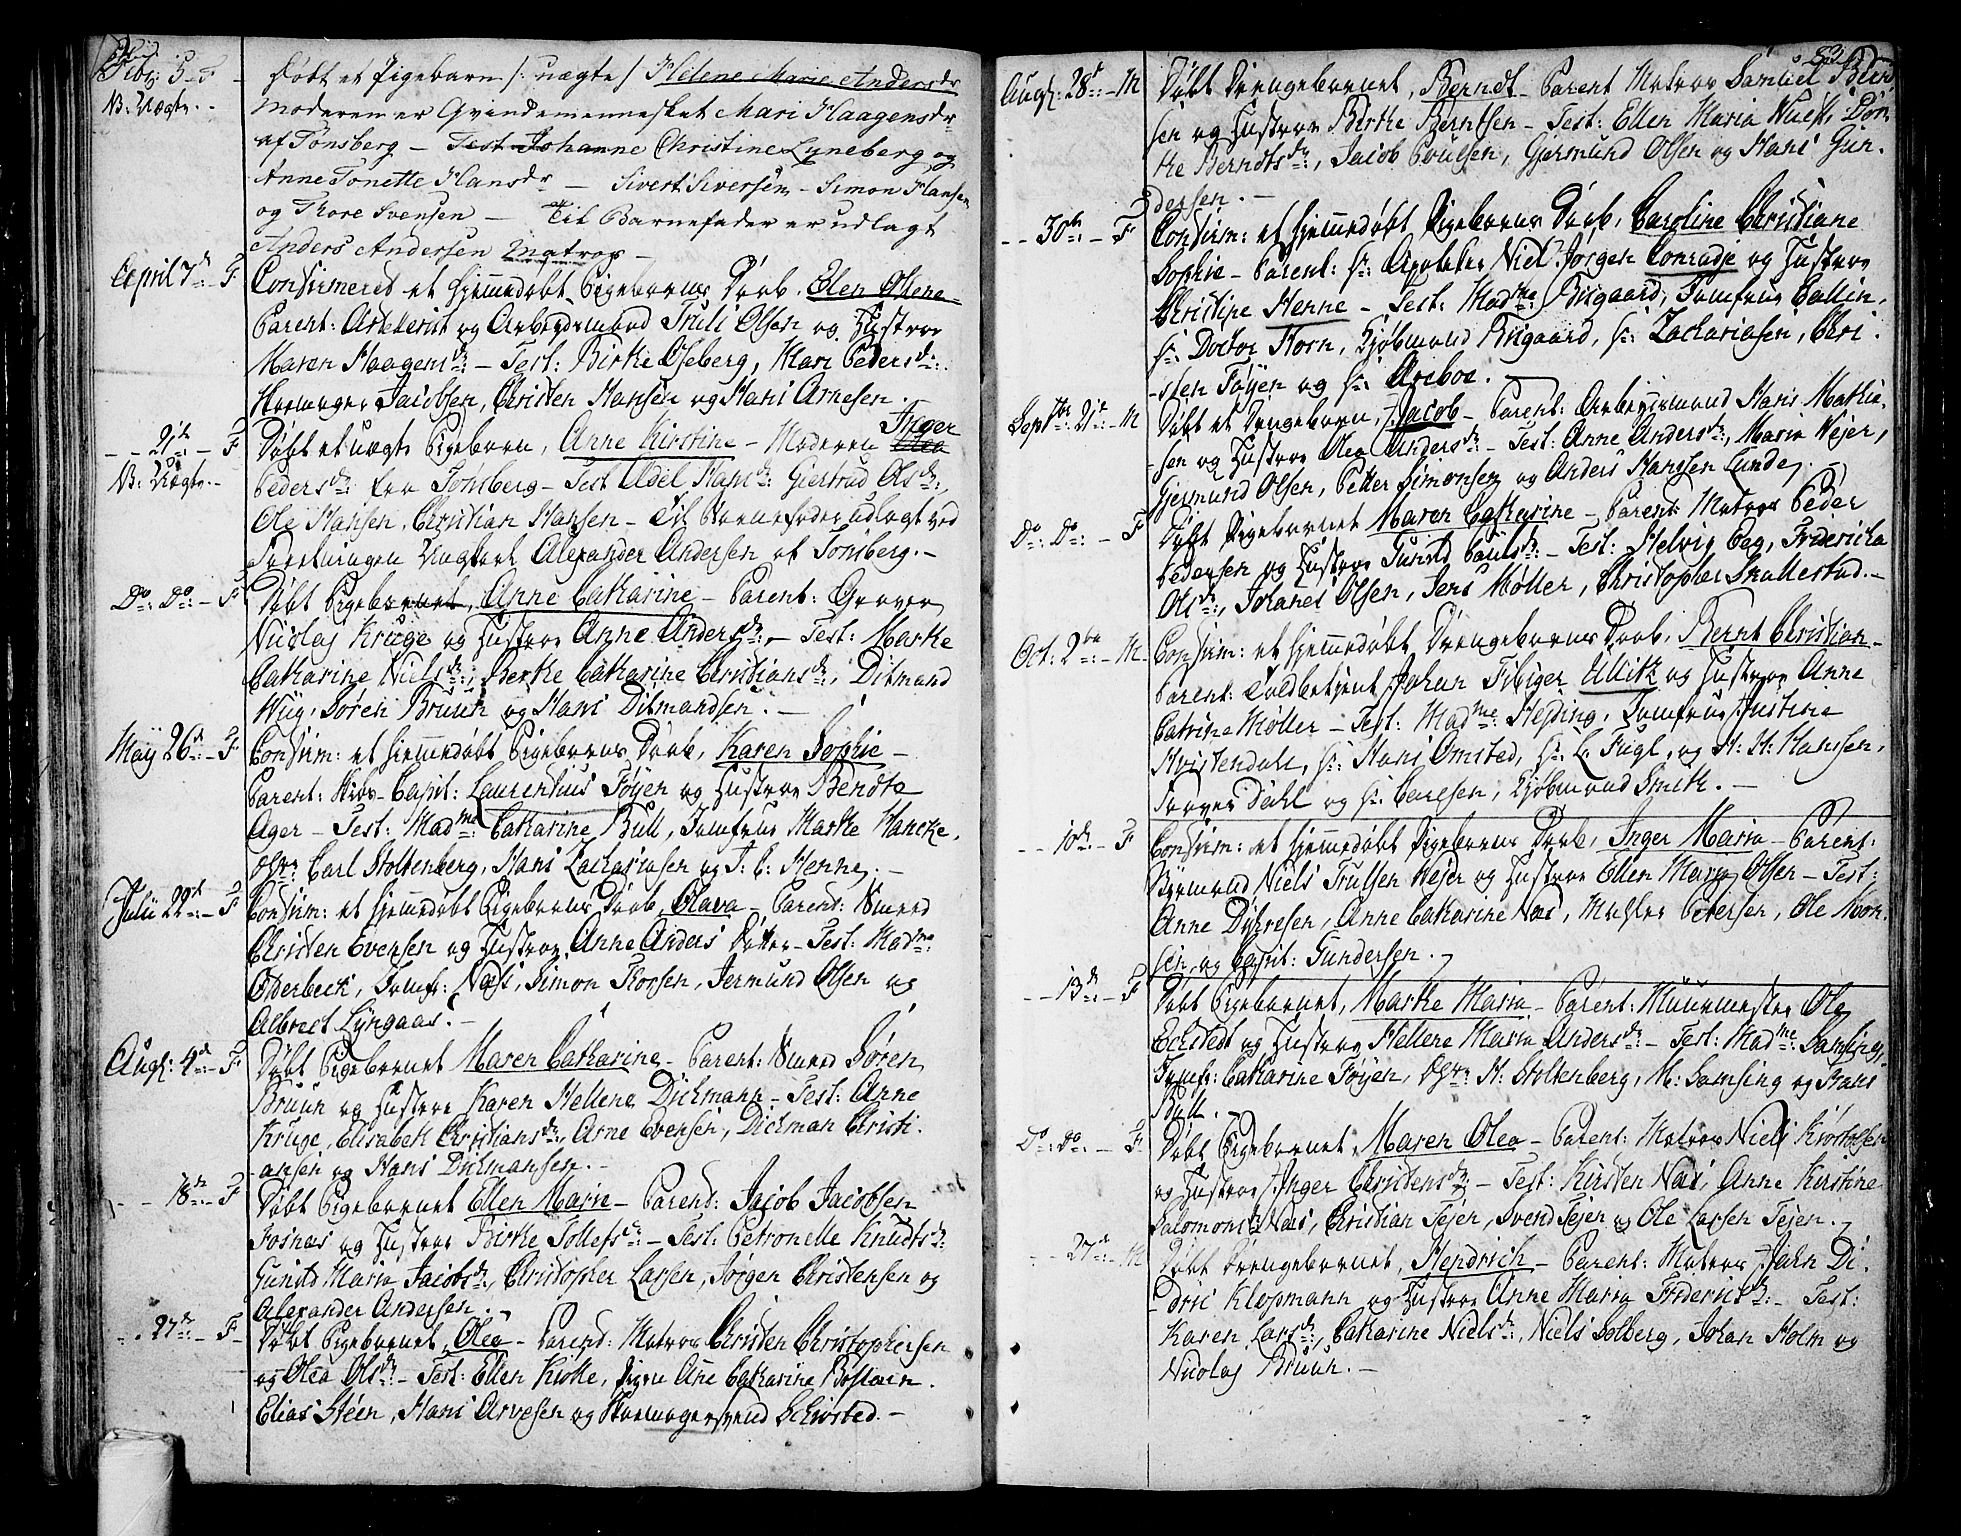 Feb: 5 - F - Døbt et Pigebarn /: uægte / Helene Marie Andersdr
N: Uægte. - Moderen er Qvindemennesket Mari Haagensdr
af Tønsberg - Test Johanne Christine Lyneberg og
Anne Tonette Hansdr - Sivert Siversen - Simon Hansen
og Thore Svensen - Til Barnefader er udlagt
Anders Andersen Matros -
April 7d - F Confirmered et hjemmedøbt Pigebarns Daab, Elen Olene -
Parent: Artellerist og Arbejdsmand Truls Olsen og Hustroe
Maren Haagensdr: - Test: Birthe Oseberg, Mari Pedersdr:
Skomager Jacobsen, Christen Hansen og Hans Arnesen. -
- - 21de - F Døbt et uægte Pigebarn, Anne Kirstine - Moderen Inger Olea
N: Uægte. - Pedersdr: fra Tønsberg - Test Adel Hansdr: Giertrud Olsdr:,
Ole Hansen, Christian Hansen - Til Barnefader udlagt ved
Forretningen Ungkarl Alexander Andersen af Tønsberg. -
Do: Do: - F Døbt Pigebarnet, Anne Catharine - Parent: Graver
Nicolay Kruge og Hustroe Anne Andersdr: - Test: Marthe
Catharine Nielsdr:, Berthe Catharine Christiansdr:, Ditmand
Wiig, Søren Bruun og Hans Ditmandsen. -
Maÿ 26de - F Confirm: et hjemmedøbt Pigebarns Daab, Karen Sophie -
Parent: Skibs-Capit: Laurentius Føÿen og Hustroe Bendte
Ager - Test: Madme: Catharine Bull, Jomfrue Marthe Hancke,
Hrr: Carl Stoltenberg, Hans Zachariasen og J. C. Henne. -
Julii 22de - F Confirm: et hjemmedøbt Pigebarns Daab, Olava - Parent: Smed
Christen Evensen og Hustroe Anne Anders Datter - Test: Madme:
Oderbeck, Jomfr: Næss, Simon Thorsen, Jermund Olsen og
Albrect Lÿngaas. -
Aug: 4de - F Døbt Pigebarnet Maren Catharine - Parent: Smed Søren
Bruun og Hustroe Karen Hellene Dithmann - Test: Anne
Kruge, Elisabeth Christiansdr:, Arne Evensen, Ditman Christi-
ansen og Hans Ditmansen. -
- - 18de - F Døbt Pigebarnet Ellen Marie - Parent: Jacob Jacobsen
Fosnæs og Hustroe Birthe Tollefsdr: - Test: Petronelle Knudtsdr:
Gunild Maria Jacobsdr:, Christopher Larsen, Jørgen Christensen og
Alexander Andersen. -
- - 27de - F - Døbt Pigebarnet Olea - Parent: Matros Christen Christophersen
og Olea Olsdr: - Test: Ellen Kiølle, Pigen Ane Catharine
Elias Steen, Hans Arvesen og Skomagersvend Schiøsted. -
83
Aug: 28de - M Døbt Drengebarnet, Berndt - Parent Matros Samuel Bern-
sen og Hustroe Birthe Berntsen - Test: Ellen Maria Dor-
the Berndtsdr:, Jacob Poulsen, Gjermund Olsen og Hans Gun-
dersen. -
- - 30te - F Confirm: et hjemmedøbt Pigebarns Daab, Caroline Christiane
Sophie - Parent: Hr: Apoteker Niels Jørgen Conradi og Hustroe
Christine Henne - Test: Madme: Bisgaard, Jomfrue Ballin,
Hr: Doctor Horn, Kjøbmand Bisgaard, Hr: Zachariasen, Chri-
sten Føÿen og Hr: Areboe. -
Septbr: 21de - M Døbt et Drengebarn, Jacob - Parent: Arbejdsmand Hans Mathie-
sen og Hustroe Olea Andersdr: - Test: Anne Andersdr:, Maria Vejer,
Gjermund Olsen, Petter Simonsen og Anders Hanssen Lunde.
Do: Do: - F Døbt Pigebarnet Maren Catharine - Parent: Matros Peder
Pedersen og Hustroe Gunild Paulsdr: - Test: Helvig Bag, Fridericha
Olsdr:, Johanes Olsen, Jens Møller, Christopher Skallestad. -
Oct: 2den - M Confirm: et hjemmedøbt Drengebarns Daab, Bernt Christian -
Parent: Toldbetjent Johan Fibiger Ullitz og Hustroe Anne
Catrine Møller - Test: Madme: Hesding, Jomfrue Justine
Hvistendall, Hr: Hans Omsted, Hr: L. Fugl, og H. H. Hanssen,
Farver Dahl og Hr: Carlsen, Kjøbmand Smith. -
- - 10de - F Confirm: et hjemmedøbt Pigebarns Daab, Inger Maria - Parent:
Bÿemand Niels Trulsen Vejer og Hustroe Ellen Maria Olsen - Test:
Anne Didriksen, Anne Catharine Næs, Maths Petersen, Ole Mon-
sen, og Capit: Gundersen. -
- - 13de - F Døbt Pigebarnet, Marthe Maria - Parent: Muurmester Ole
Eckstedt og Hustroe Hellene Maria Andersdr: - Test: Madme: Samsing,
Jomfr: Catharine Føÿen, Hrr: H. Stoltenberg, M: Samsing og Hans
Bull. -
Do: do: - F Døbt Pigebarnet, Maren Olea - Parent: Matros Niels Kristofers
og Hustroe Inger Christensdr: - Test: Kirsten Næs, Anne Kirstine
Salomonsdr Næs, Christian Tejen, Svend Tejen og Ole Larsen Tejen. -
- - 27de - M Døbt Drengebarnet, Hendrich - Parent: Matros John Di-
dric Klopmann og Hustroe Anne Maria Fridericsdr: - Test:
Karen Larsdr:, Catharine Nielsdr:, Niels Solberg, Johan Holm og
Nicolaÿ Bruun. -